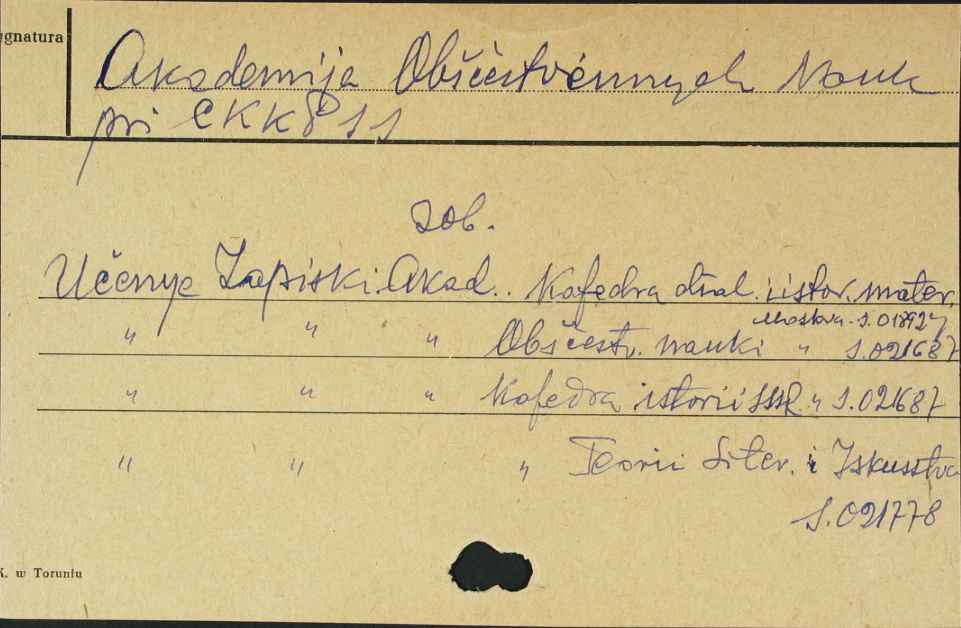 ygnatura
Akademija Obščestvennych Nauk
pri CKKPSS
zob.
Učenye Zapiski. Akad.. Kafedra dial. i istor. mater.
Moskva - S.
" " " Obščestv. nauki " S.021687
" " " Kafedra istorii SSSR. " S.021687
" " " Teorii Liter. i Iskusstva
S.021778
K. w Toruniu